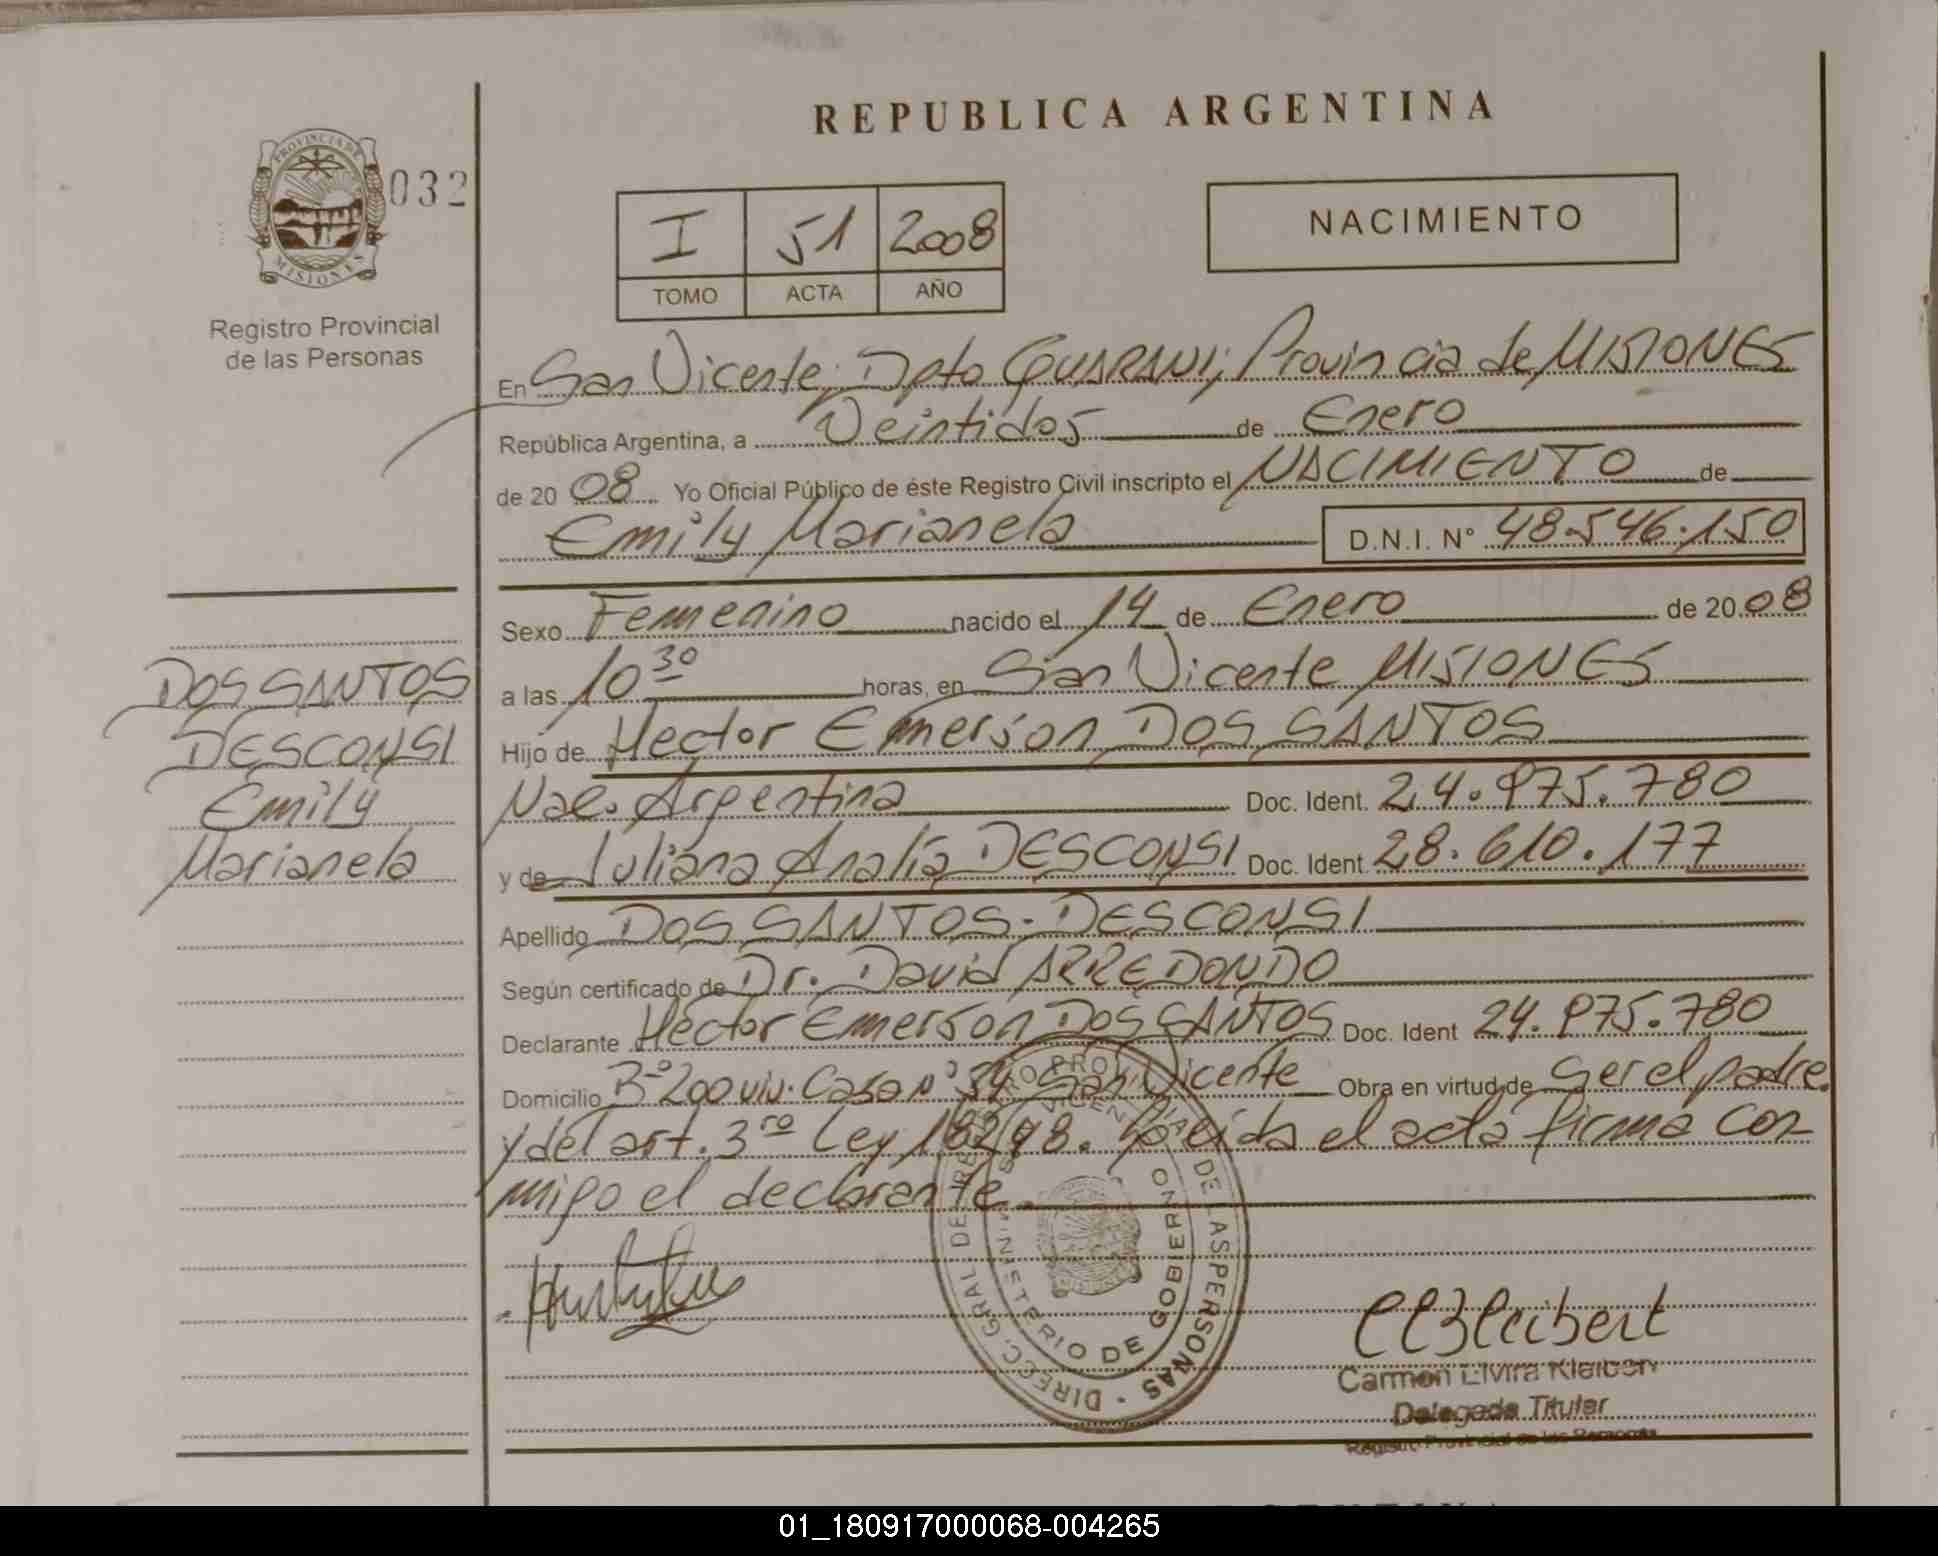 REPUBLICA ARGENTINA
PROVINCIA DE
MISIONES
032
Registro Provincial
de las Personas
I 51 2008
TOMO ACTA AÑO
NACIMIENTO
En San Vicente, Dpto GUARANI, Provincia de MISIONES
República Argentina, a Veintidos de Enero
de 20 08 Yo Oficial Público de éste Registro Civil inscripto el NACIMIENTO de
Emily Marianela D.N.I. N° 48.546.150
Sexo Femenino nacido el 14 de Enero de 20 08
a las 10 30 horas, en San Vicente MISIONES
Hijo de Hector Emerson DOS SANTOS
Nac. Argentina Doc. Ident. 24.975.780
y de Juliana Analía DESCONSI Doc. Ident. 28.610.177
Apellido DOS SANTOS - DESCONSI
Según certificado de Dr. David ARREDONDO
Declarante Héctor Emerson DOS SANTOS Doc. Ident 24.975.780
Domicilio B° 200 viv. Casa N° 34 San Vicente Obra en virtud de ser el padre
y del art. 3ro Ley 18248. Leída el acta firma con
migo el declarante
DOS SANTOS
DESCONSI
Emily
Marianela
DIREC. GRAL DE REGISTRO PROVINCIAL DE LAS PERSONAS
SAN VICENTE
MINISTERIO DE GOBIERNO
Carmen Elvira Kleibert
Delegada Titular
Registro Provincial de las Personas
01_180917000068-004265